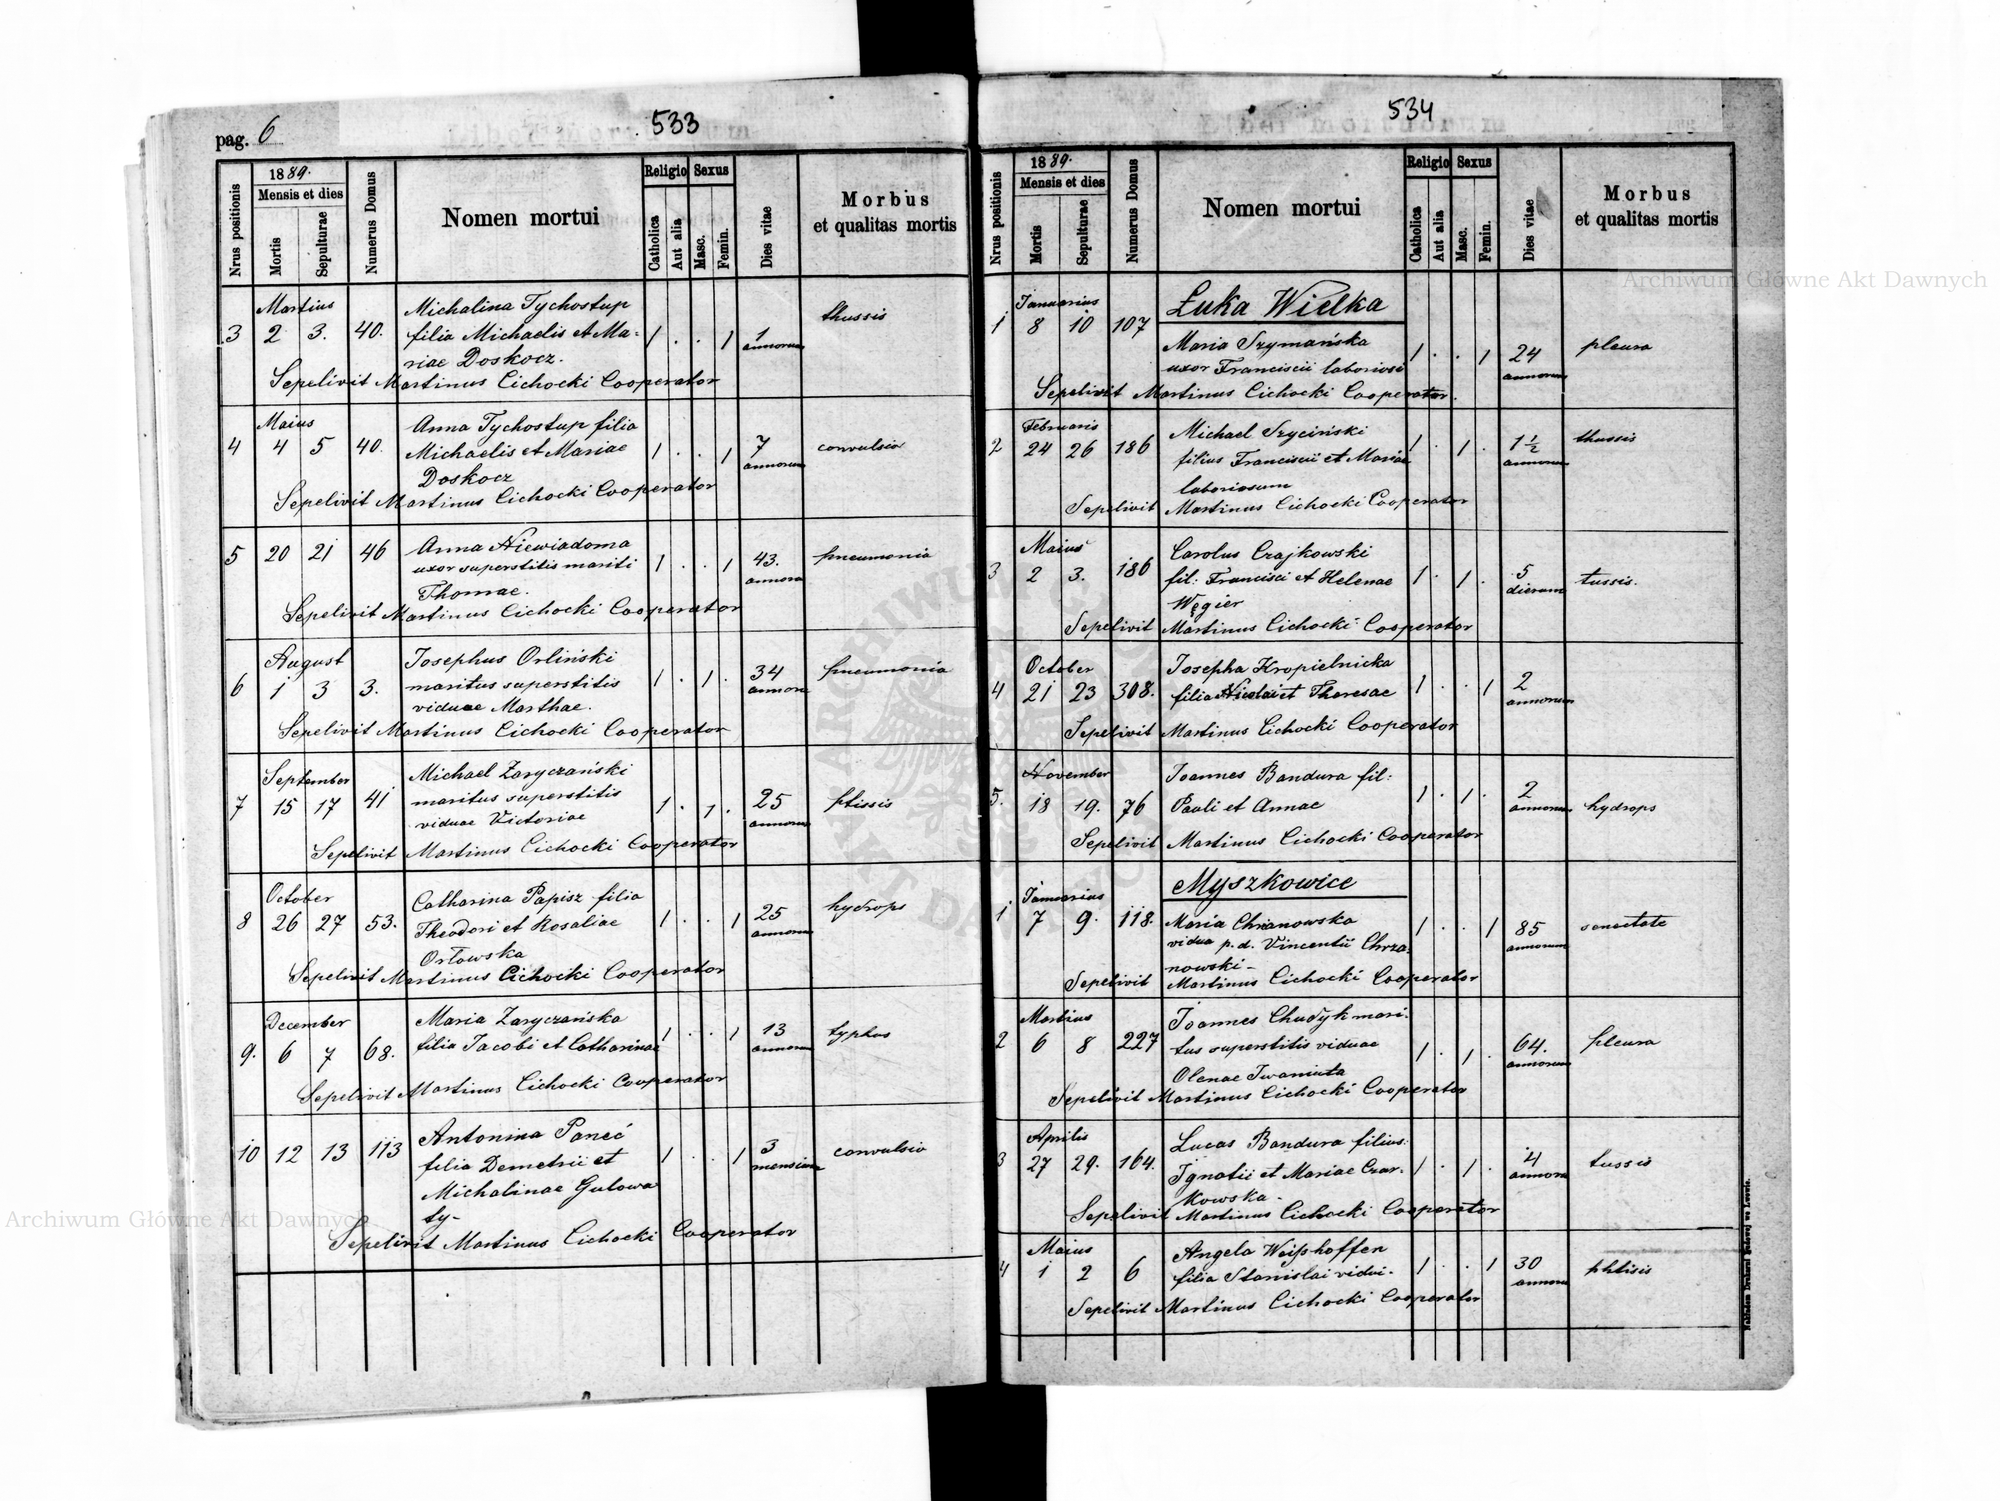 533
pag. 6
Nrus positionis
1889.
Mensis et dies
Mortis
Sepulturae
Numerus Domus
Nomen mortui
Religio
Catholica
Aut alia
Sexus
Masc.
Femin.
Dies vitae
Morbus
et qualitas mortis
Martius
3 2 3. 40. Michalina Tychostup
filia Michaelis et Ma-
riae Doskocz.
1 . . 1 1 annorum thussis
Sepelivit Martinus Cichocki Cooperator
Maius
4 4 5 40. Anna Tychostup filia
Michaelis et Mariae
Doskocz
1 . . 1 7 annorum convulsio
Sepelivit Martinus Cichocki Cooperator
5 20 21 46 Anna Niewiadoma
uxor superstitis mariti
Thomae.
1 . . 1 43. annora pneumonia
Sepelivit Martinus Cichocki Cooperator
August
6 1 3 3. Josephus Orliński
maritus superstitis
viduae Marthae.
1 . 1 . 34 annora pneumonia
Sepelivit Martinus Cichocki Cooperator
September
7 15 17 41 Michael Zaryczański
maritus superstitis
viduae Victoriae
1 . 1 . 25 annorum ptissis
Sepelivit Martinus Cichocki Cooperator
October
8 26 27 53. Catharina Papisz filia
Theodori et Rosaliae
Orłowska
1 . . 1 25 annorum hydrops
Sepelivit Martinus Cichocki Cooperator
December
9. 6 7 68. Maria Zaryczańska
filia Jacobi et Catharinae
1 . . 1 13 annorum typhus
Sepelivit Martinus Cichocki Cooperator
10 12 13 113 Antonina Paneć
filia Demetrii et
Michalinae Gulowa
ty-
1 . . 1 3 mensium convulsio
Sepelivit Martinus Cichocki Cooperator
534
Nrus positionis
1889.
Mensis et dies
Mortis
Sepulturae
Numerus Domus
Nomen mortui
Religio
Catholica
Aut alia
Sexus
Masc.
Femin.
Dies vitae
Morbus
et qualitas mortis
Łuka Wielka
Januarius
1 8 10 107 Maria Szymańska
uxor Franciscii laboriosi
1 . . 1 24 annorum pleura
Sepelivit Martinus Cichocki Cooperator.
Februaris
2 24 26 186 Michael Szyciński
filius Franciscii et Mariae
laboriosum
1 . 1 . 1 1/2 annorum thussis
Sepelivit Martinus Cichocki Cooperator
Maius
3 2 3. 186 Carolus Czajkowski
fil: Francisci et Helenae
Węgier
1 . 1 . 5 dierum tussis.
Sepelivit Martinus Cichocki Cooperator
October
4 21 23 308. Josepha Kropielnicka
filia Nicolai et Theresae
1 . . 1 2 annorum
Sepelivit Martinus Cichocki Cooperator
November
5. 18 19. 76 Joannes Bandura fil:
Pauli et Annae
1 . 1 . 2 annorum hydrops
Sepelivit Martinus Cichocki Cooperator
Myszkowice
Januarius
1 7 9. 118. Maria Chrzanowska
vidua p. d. Vincentii Chrza-
nowski-
1 . . 1 85 annorum senectute
Sepelivit Martinus Cichocki Cooperator
Martius
2 6 8 227 Joannes Chudyk mari-
tus superstitis viduae
Olenae Iwaniuta
1 . 1 . 64. annorum pleura
Sepelivit Martinus Cichocki Cooperator
Aprilis
3 27 29. 164. Lucas Bandura filius
Ignatii et Mariae Czar-
kowska-
1 . 1 . 4 annora tussis
Sepelivit Martinus Cichocki Cooperator
Maius
4 1 2 6 Angela Weisshoffen
filia Stanislai vidui-
1 . . 1 30 annora phtisis
Sepelivit Martinus Cichocki Cooperator
Archiwum Główne Akt Dawnych
Archiwum Główne Akt Dawnych